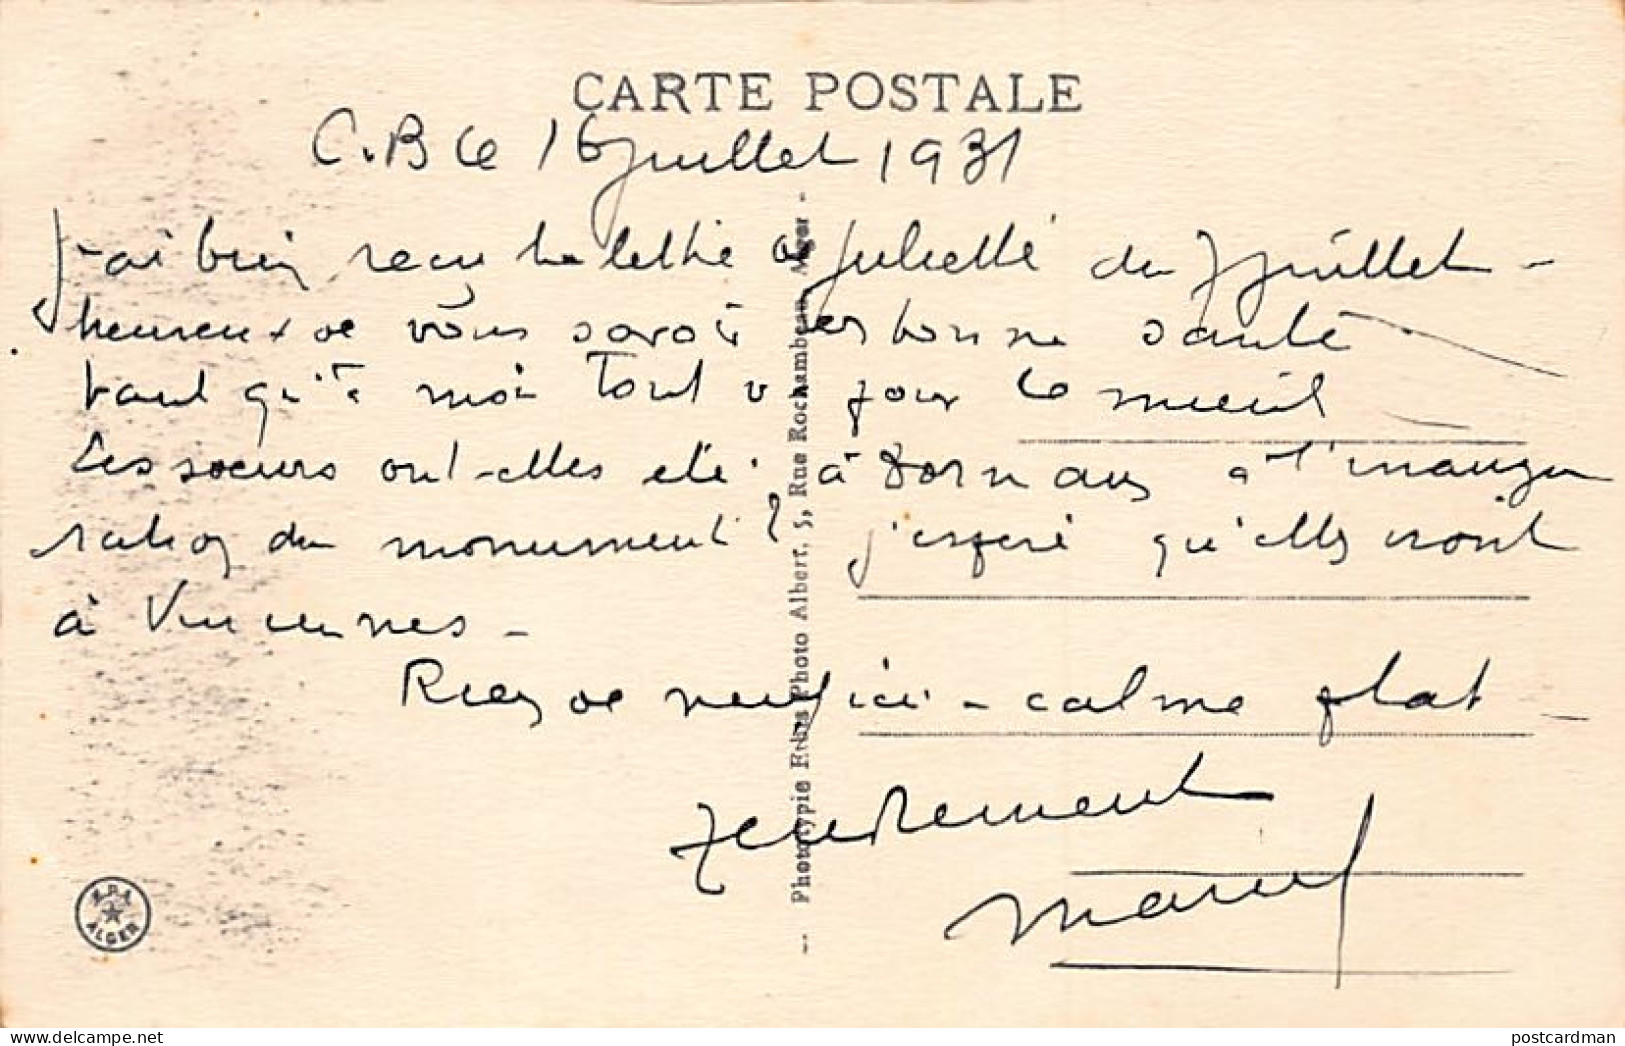 CARTE POSTALE
C.B le 16 juillet 1931
J'ai bien reçu ta lettre de Juliette du 7 juillet -
heureux de vous savoir en bonne santé
tant qu'à moi tout va pour le mieux
Les soeurs ont-elles été à Dormans à l'inaugu
ration du monument? j'espère qu'elles iront
à Vincennes -
Rien de neuf ici - calme plat -
Tendrement
Marcel
- Phototypie Etabs Photo Albert, 5, Rue Rochambeau, Alger -
ALGER
postcardman